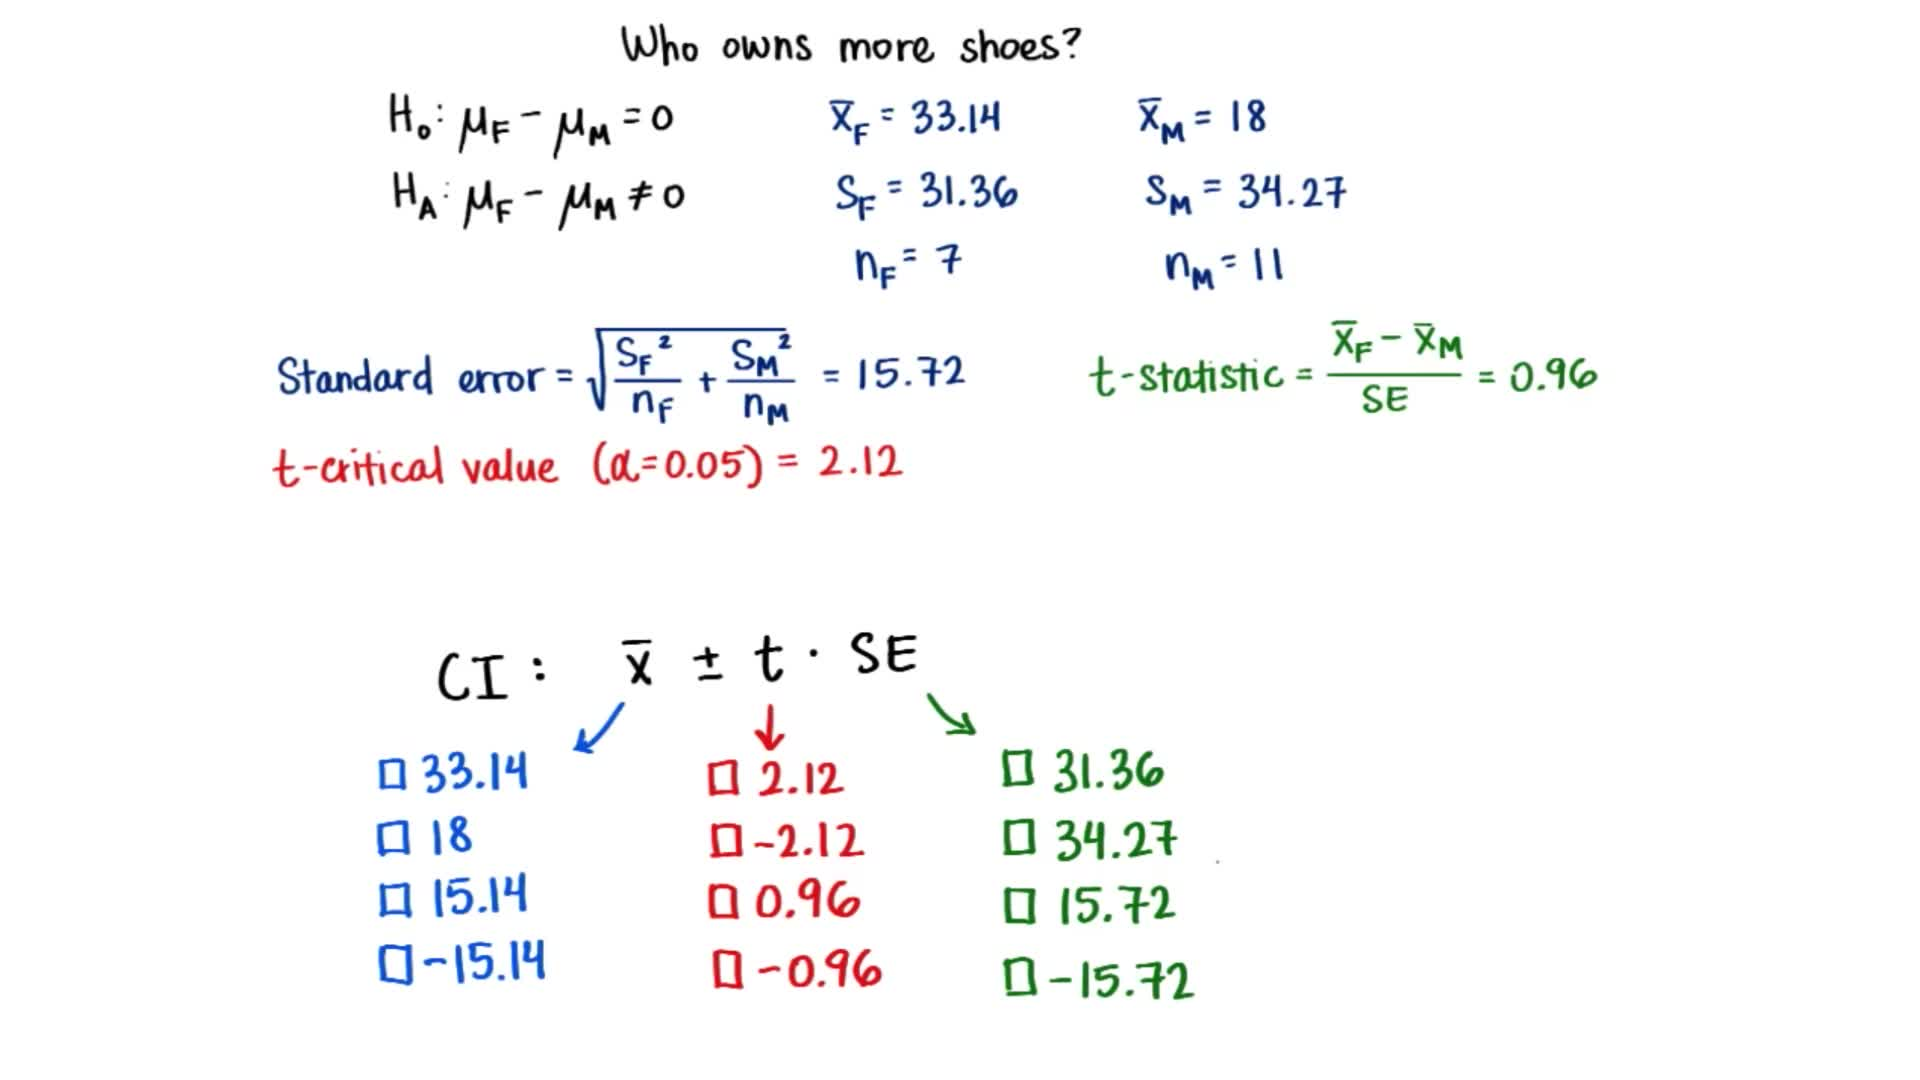 Who owns more shoes?
H₀: μF − μM = 0
HA: μF − μM ≠ 0
x̄F = 33.14
SF = 31.36
nF = 7
x̄M = 18
SM = 34.27
nM = 11
Standard error = √(SF²/nF + SM²/nM) = 15.72
t-statistic = (x̄F − x̄M)/SE = 0.96
t-critical value (α=0.05) = 2.12
CI: x̄ ± t · SE
□ 33.14
□ 18
□ 15.14
□ -15.14
□ 2.12
□ -2.12
□ 0.96
□ -0.96
□ 31.36
□ 34.27
□ 15.72
□ -15.72